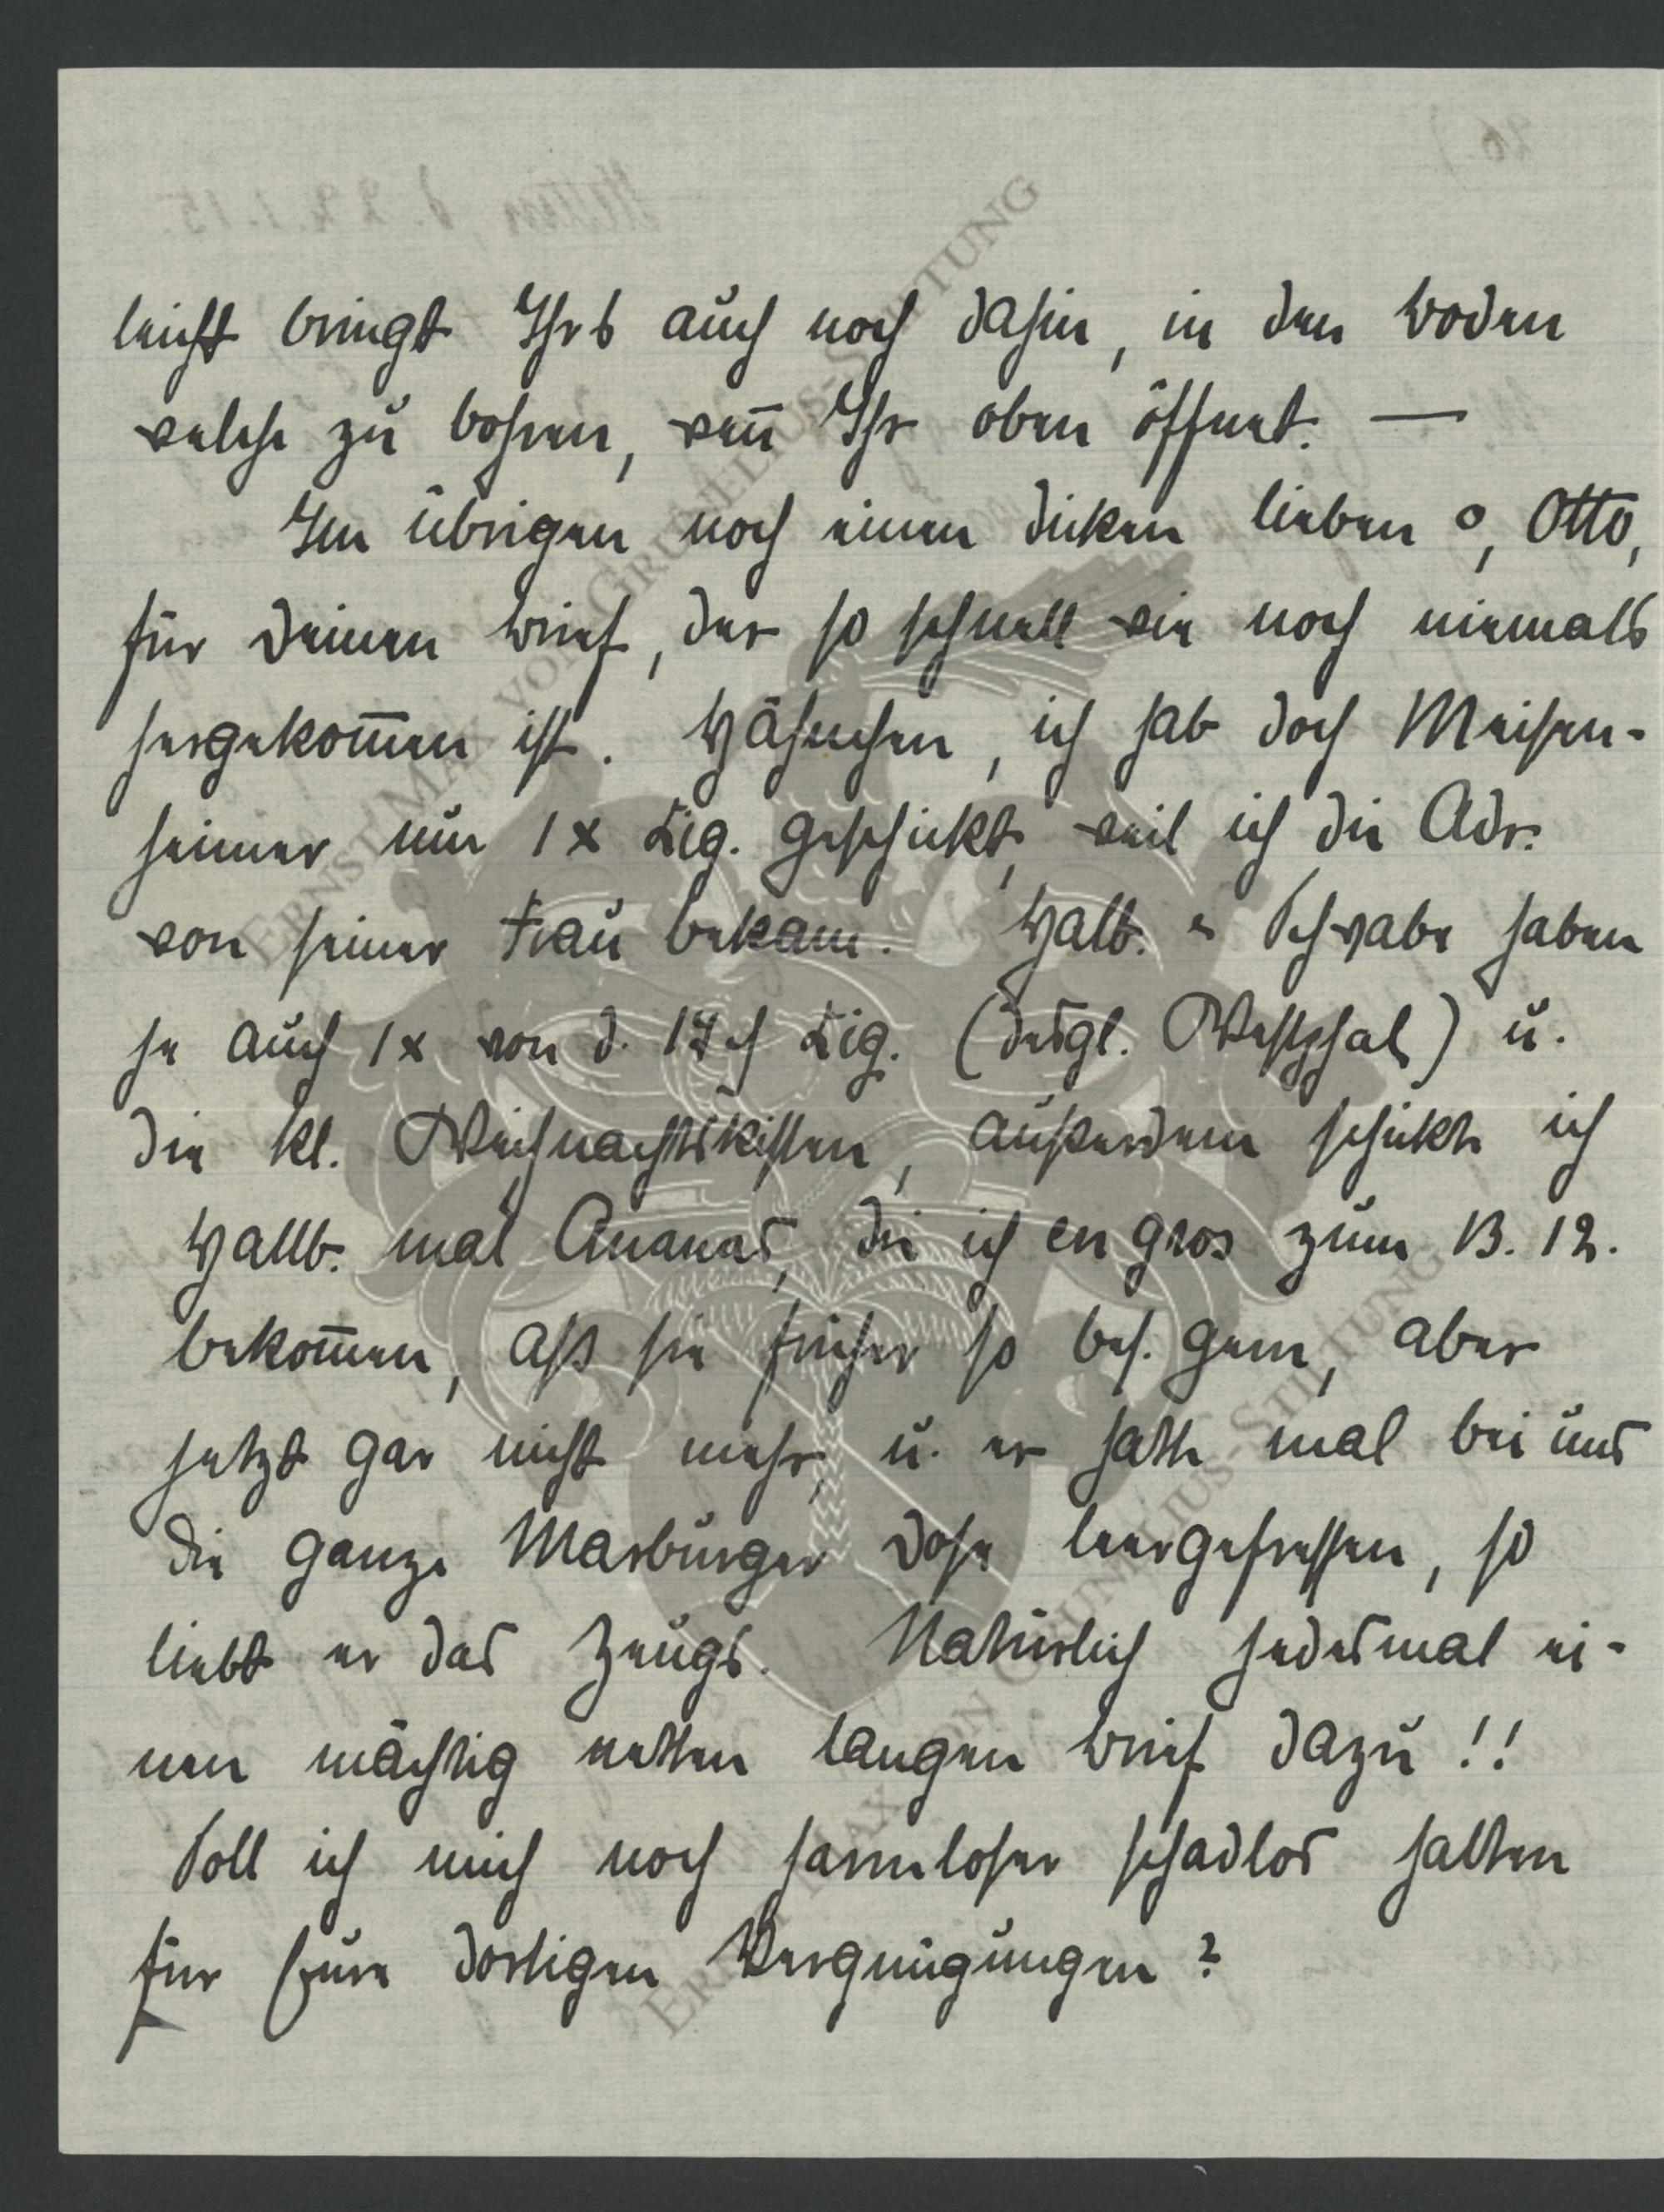 leicht bringt Ihrs auch noch dahin, in den Boden
welche zu bohren, wenn̄ Ihr oben öffnet. —
Im übrigen noch einen dicken lieben °, Otto,
für Deinen Brief, der so schnell wie noch niemals
hergekom̄en ist. Hähnchen, ich hab doch Meisen-
heimer nur 1 x Zig. geschickt, weil ich die Adr.
von seiner Frau bekam. Halb. u Schwabe haben
ja auch 1 x von d. Zig. (desgl. Westphal) u.
die kl. Weihnachtskisten, außerdem schickte ich
Hallb. mal Ananas, die ich en gros zum 13. 12.
bekom̄en, aß sie früher so bes. gern, aber
jetzt gar nicht mehr, u. er hatte mal bei uns
die ganze Marburger Dose leergefressen, so
liebt er das Zeugs. Natürlich jedesmal ei-
nen mächtig netten langen Brief dazu!!
Soll ich mich noch harmloser schadlos halten
für Eure dortigen Vergnügungen?
ERNST MAX VON GRUNELIUS-STIFTUNG
ERNST MAX VON GRUNELIUS-STIFTUNG